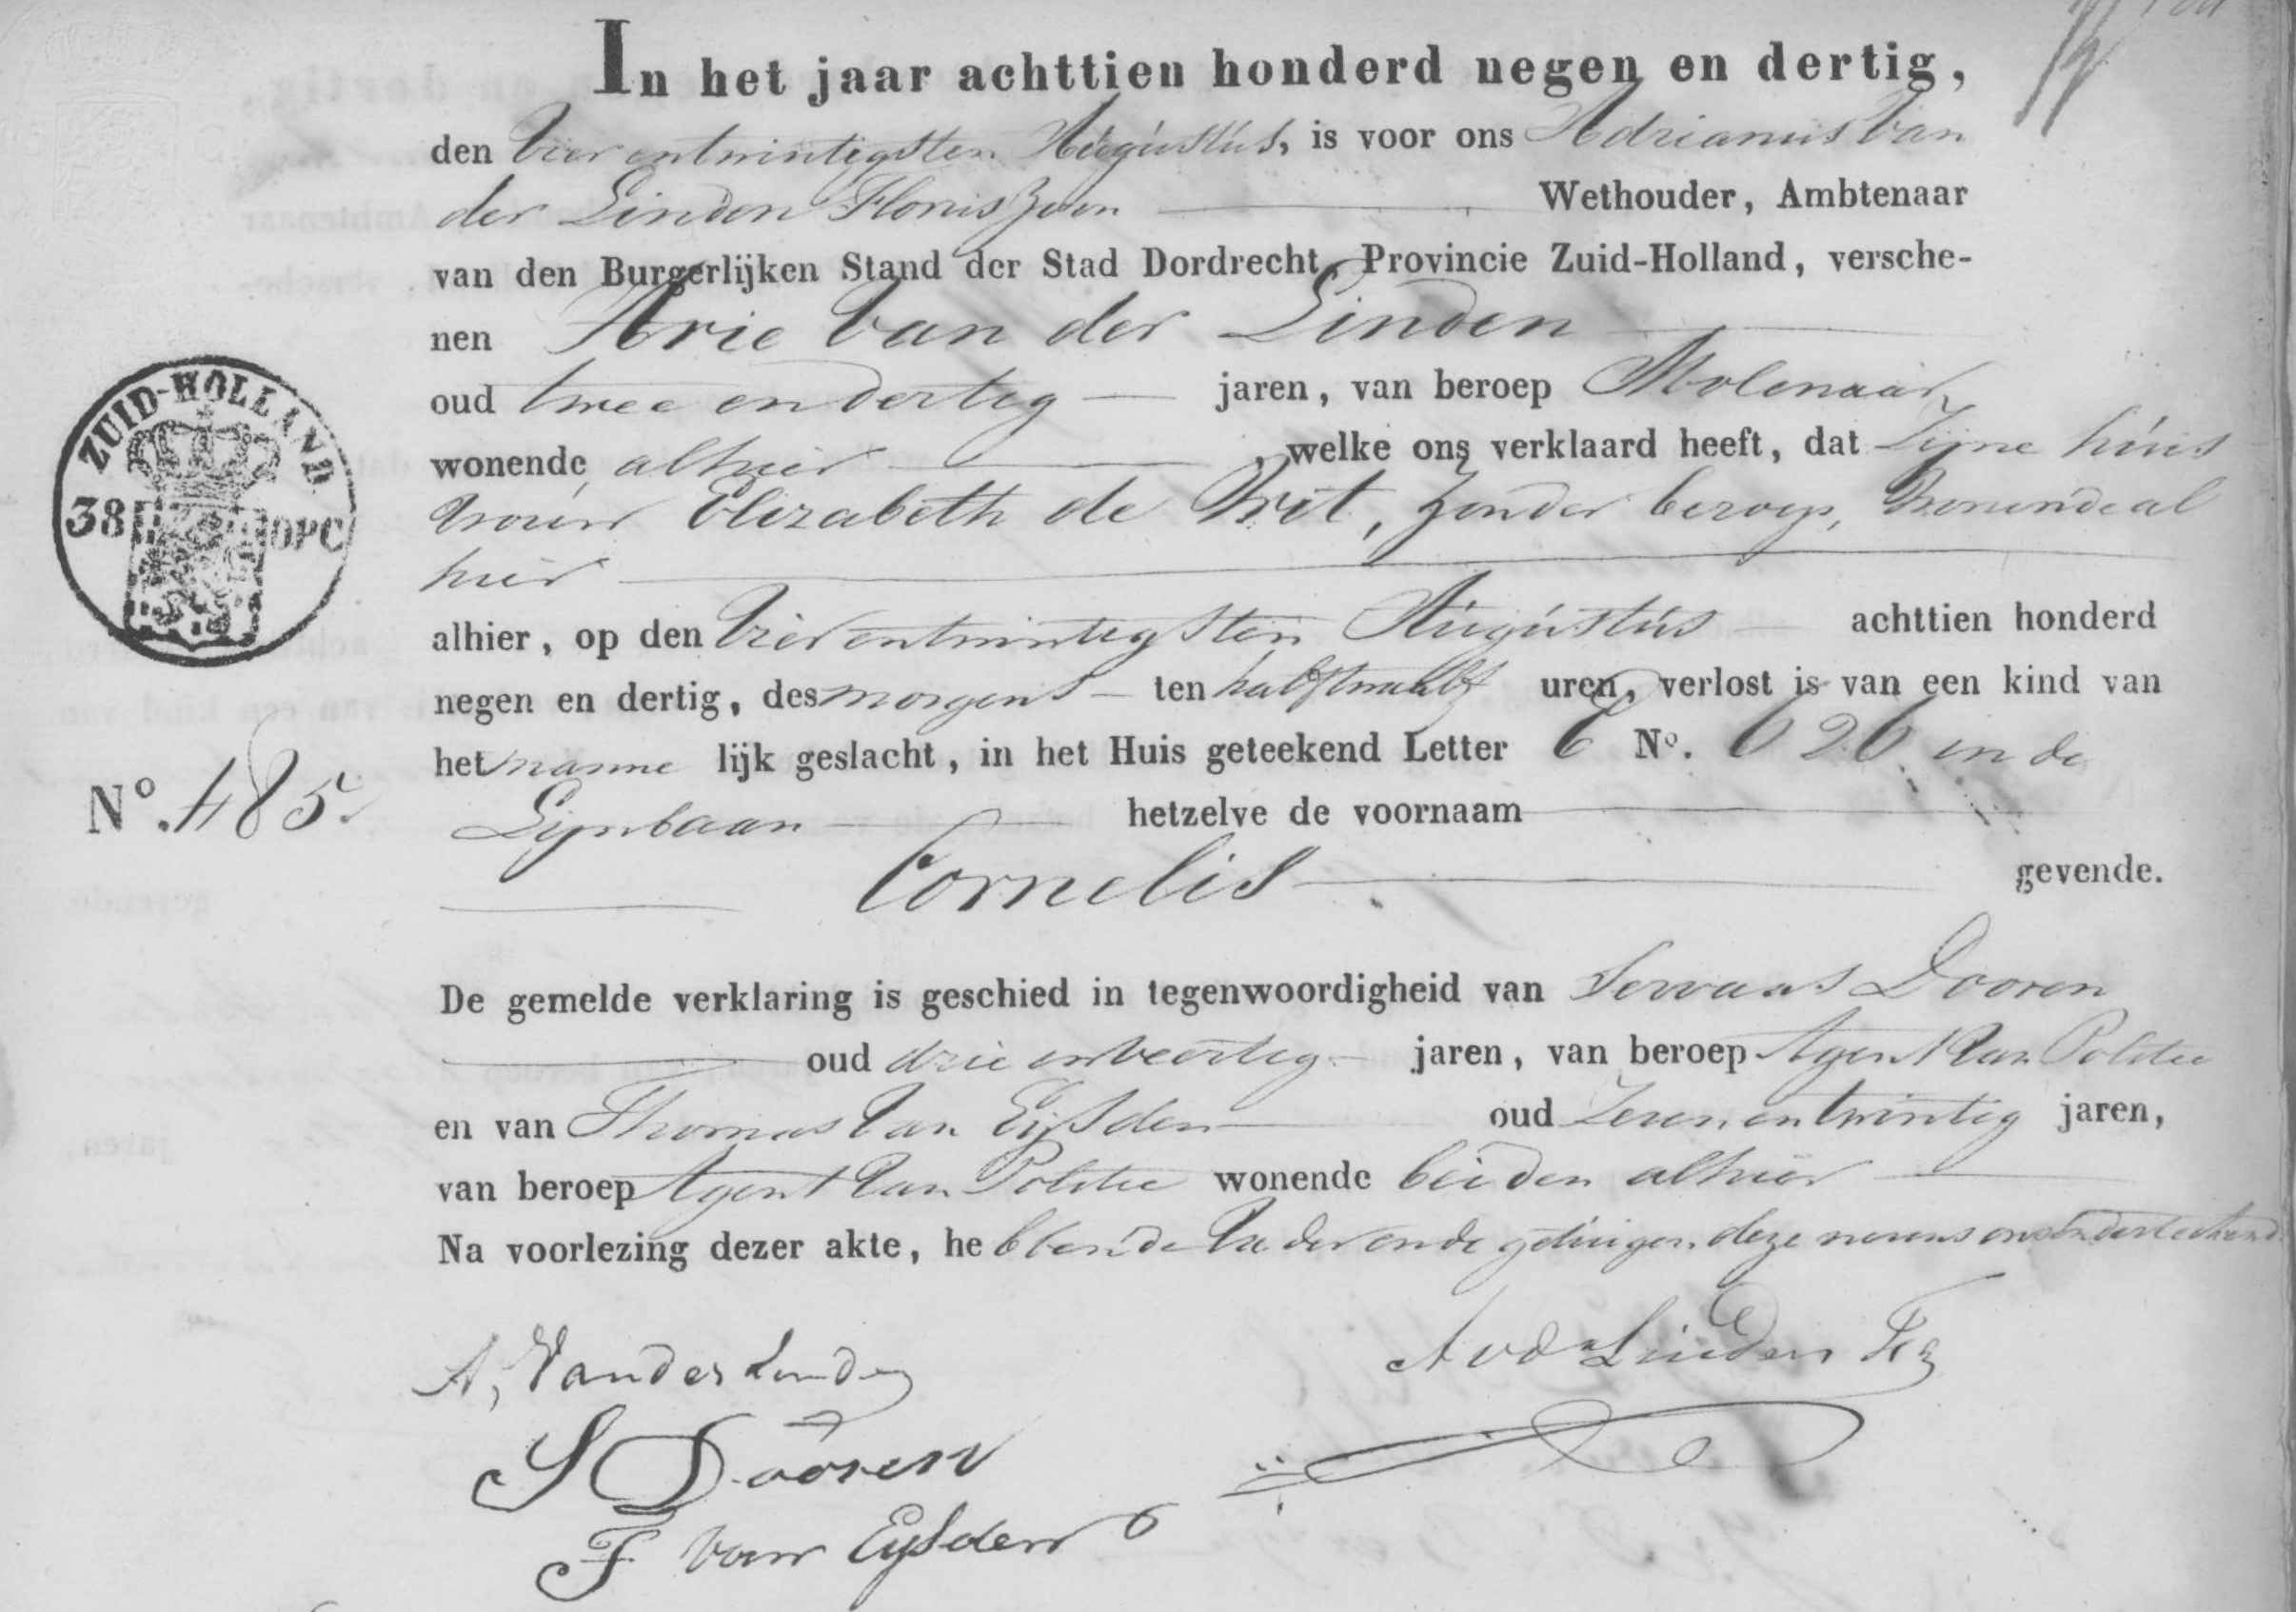 In het jaar achttien honderd negen en dertig,
den Vierentwintigsten Augustus, is voor ons Adrianus van
der Linden Floriszoon Wethouder, Ambtenaar
van den Burgerlijken Stand der Stad Dordrecht, Provincie Zuid-Holland, versche-
nen Arie van der Linden
oud twee en dertig jaren, van beroep Molenaar,
wonende alhier, welke ons verklaard heeft, dat Zijne huis
vrouw Elizabeth de Vrit, zonder beroep, wonende al
hier
alhier, op den Vierentwintigsten Augustus achttien honderd
negen en dertig, des morgens ten half twaalf uren, verlost is van een kind van
het manne lijk geslacht, in het Huis geteekend Letter C No. 626 in de
Lynbaan hetzelve de voornaam
Cornelis gevende.
De gemelde verklaring is geschied in tegenwoordigheid van Servaas Dooren
oud drie en veertig jaren, van beroep Agent van Politie
en van Thomas van Eijsden oud Zeven en twintig jaren,
van beroep Agent van Politie wonende beiden alhier
Na voorlezing dezer akte, he bben de Vader en de getuigen deze nevens ons onderteekend.
ZUID-HOLLAND
38 OPC
No. 485.
A, Vander Linden
A vd Linden Fz
S Dooren
T van Eysden